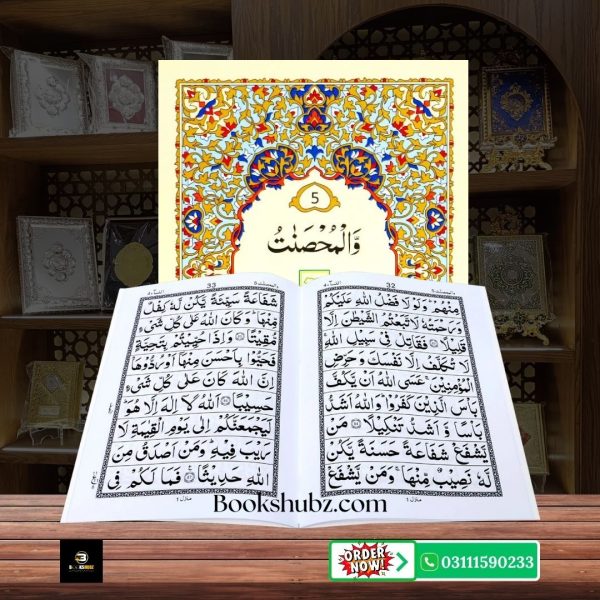 5
وَالْمُحْصَنٰتُ
32
مِنْهُمْ ؕ وَلَوْ لَا فَضْلُ اللّٰهِ عَلَيْكُمْ
وَرَحْمَتُهٗ لَاتَّبَعْتُمُ الشَّيْطٰنَ اِلَّا
قَلِيْلًا ۝ فَقَاتِلْ فِيْ سَبِيْلِ اللّٰهِ ۚ
لَا تُكَلَّفُ اِلَّا نَفْسَكَ وَحَرِّضِ
الْمُؤْمِنِيْنَ ۚ عَسَى اللّٰهُ اَنْ يَّكُفَّ
بَاْسَ الَّذِيْنَ كَفَرُوْا ؕ وَاللّٰهُ اَشَدُّ
بَاْسًا وَّ اَشَدُّ تَنْكِيْلًا ۝ مَنْ
يَّشْفَعْ شَفَاعَةً حَسَنَةً يَّكُنْ
لَّهٗ نَصِيْبٌ مِّنْهَا ۚ وَمَنْ يَّشْفَعْ
منزل ١
33
شَفَاعَةً سَيِّئَةً يَّكُنْ لَّهٗ كِفْلٌ
مِّنْهَا ؕ وَكَانَ اللّٰهُ عَلٰى كُلِّ شَيْءٍ
مُّقِيْتًا ۝ وَاِذَا حُيِّيْتُمْ بِتَحِيَّةٍ
فَحَيُّوْا بِاَحْسَنَ مِنْهَآ اَوْ رُدُّوْهَا ؕ
اِنَّ اللّٰهَ كَانَ عَلٰى كُلِّ شَيْءٍ
حَسِيْبًا ۝ اَللّٰهُ لَآ اِلٰهَ اِلَّا هُوَ ؕ
لَيَجْمَعَنَّكُمْ اِلٰى يَوْمِ الْقِيٰمَةِ لَا
رَيْبَ فِيْهِ ؕ وَمَنْ اَصْدَقُ مِنَ
اللّٰهِ حَدِيْثًا ۝ فَمَا لَكُمْ فِي
منزل ١
Bookshubz.com
B
BOOKSHUBZ
ORDER
NOW!
03111590233